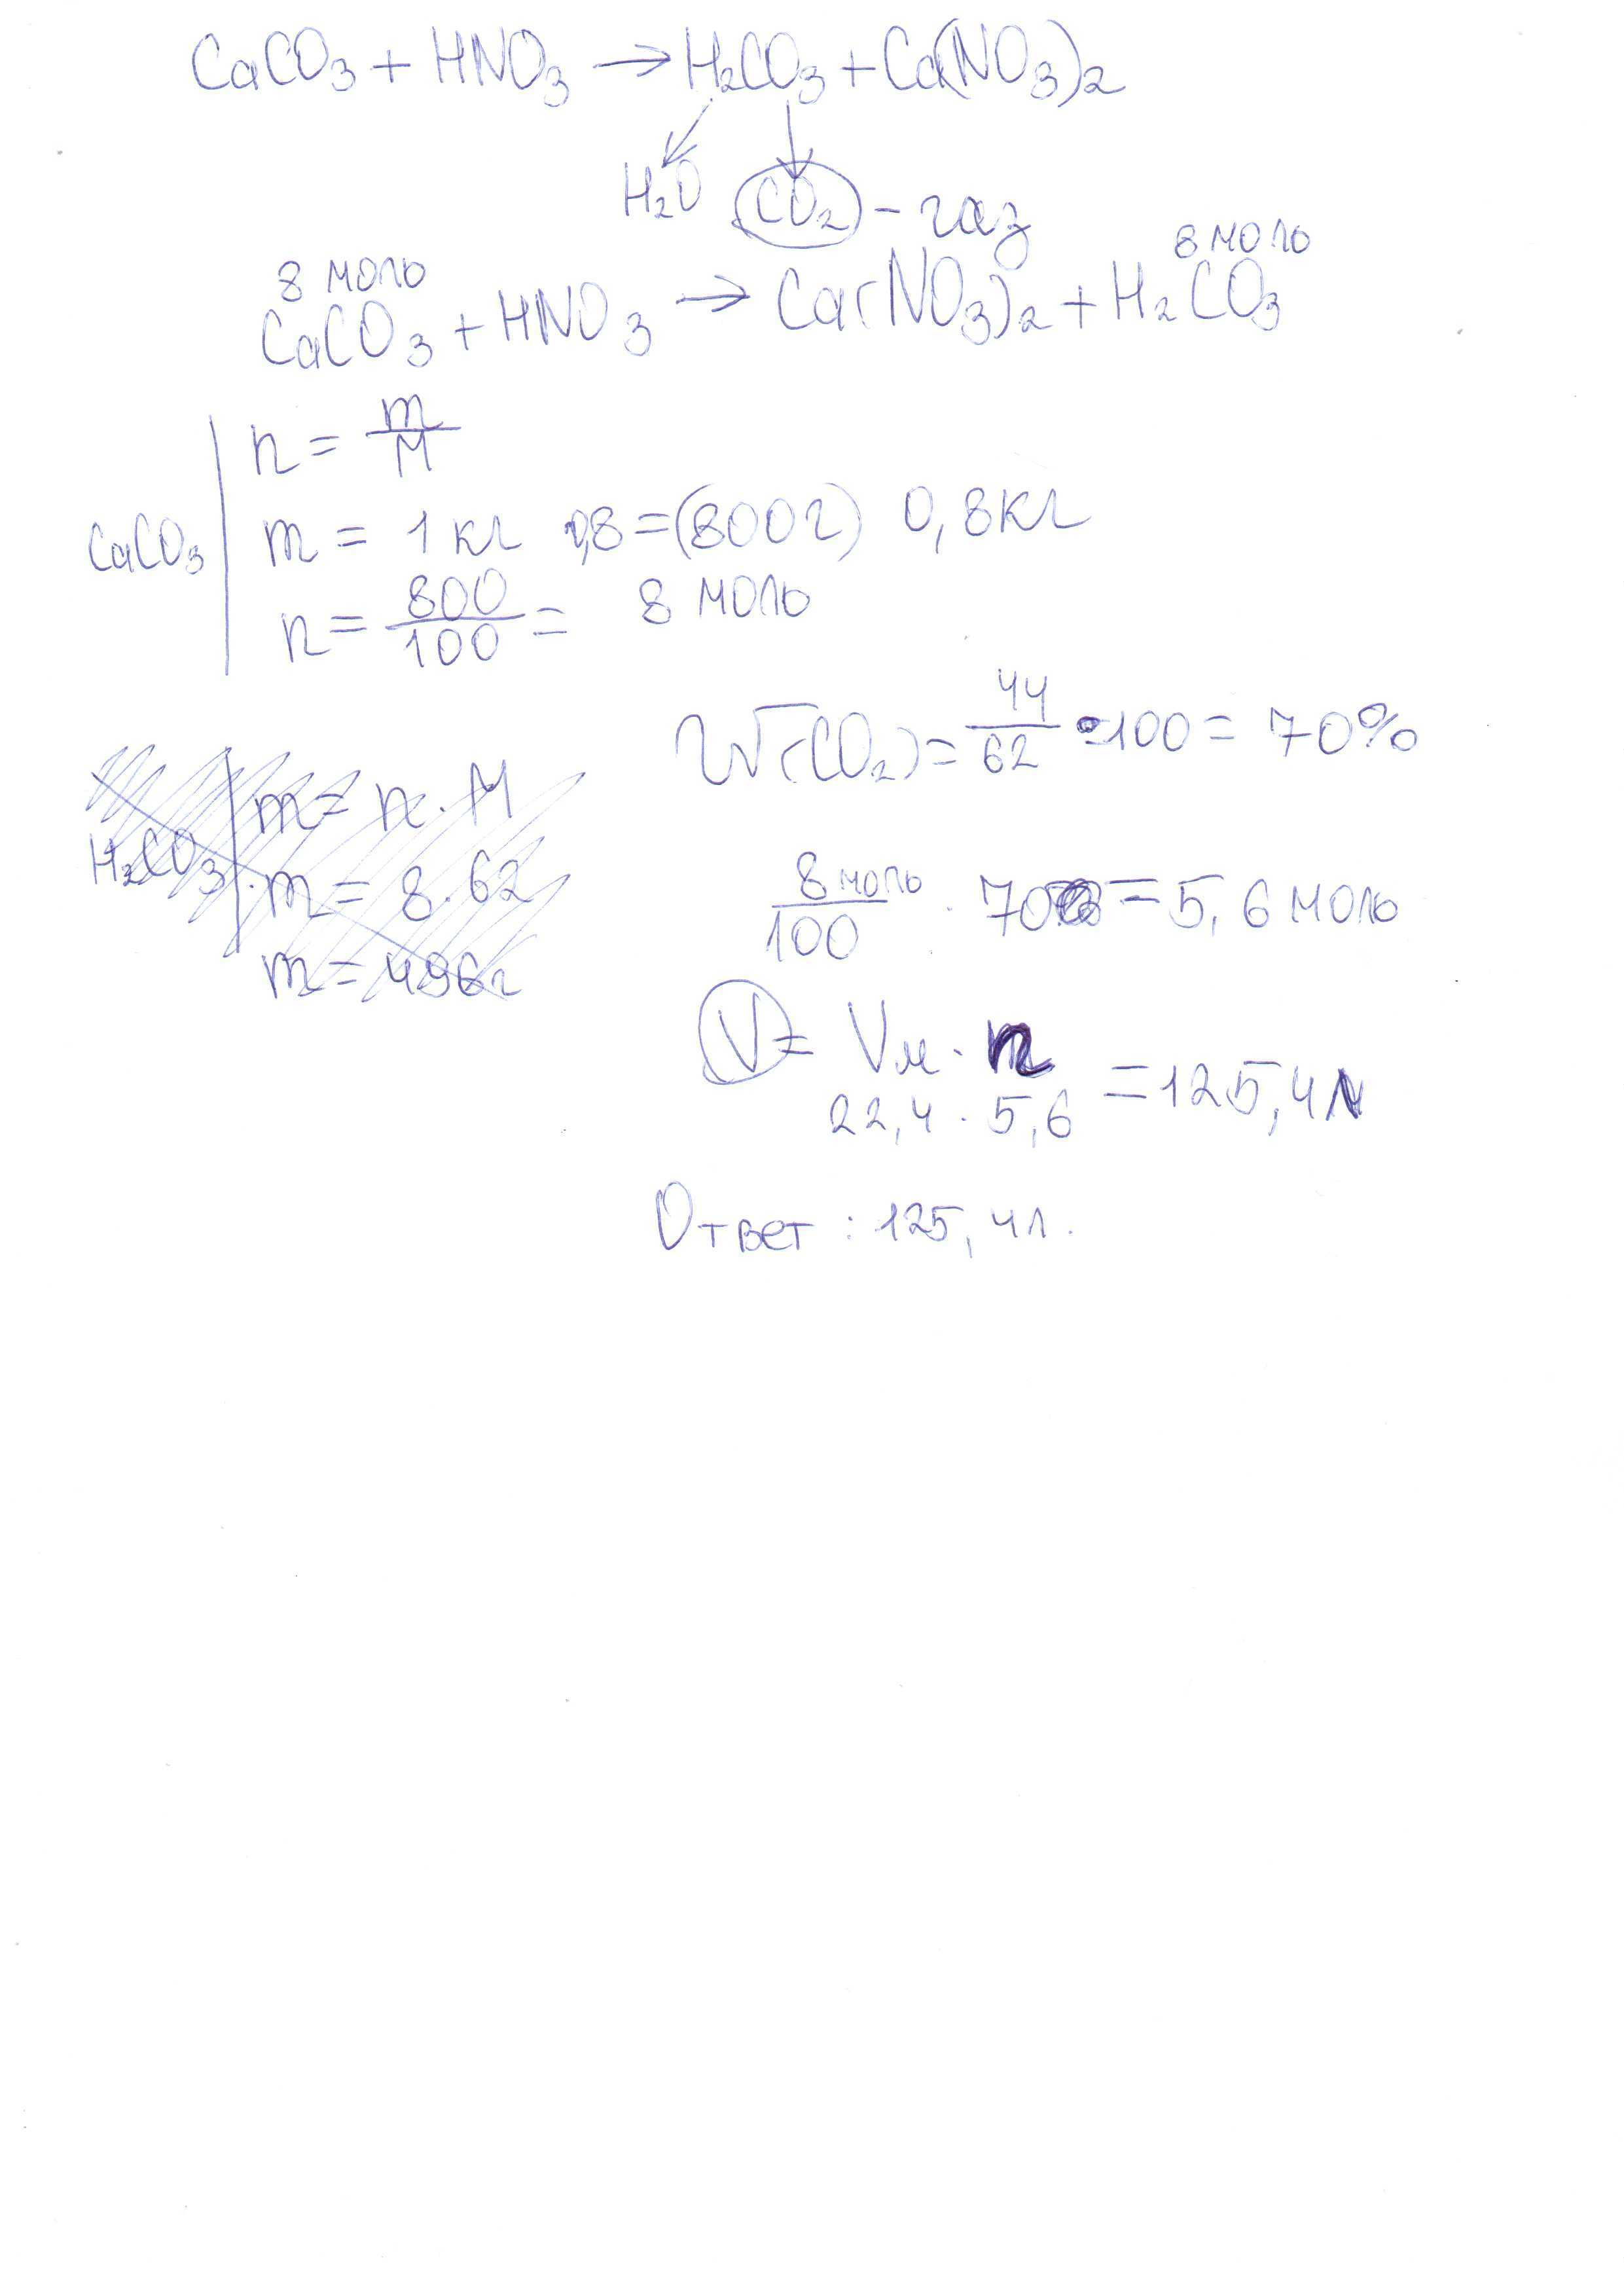 CaCO₃ + HNO₃ → H₂CO₃ + Ca(NO₃)₂
H₂O CO₂ - газ
8 моль 8 моль
CaCO₃ + HNO₃ → Ca(NO₃)₂ + H₂CO₃
n = m/M
CaCO₃ m = 1 кг 0,8 = (800г) 0,8 кг
n = 800/100 = 8 моль
W(CO₂) = 44/62 · 100 = 70%
m = n · M
H₂CO₃ m = 8 · 62
m = 496г
8 моль/100 · 70 = 5,6 моль
V = Vм · n
22,4 · 5,6 = 125,4л
Ответ : 125,4л.